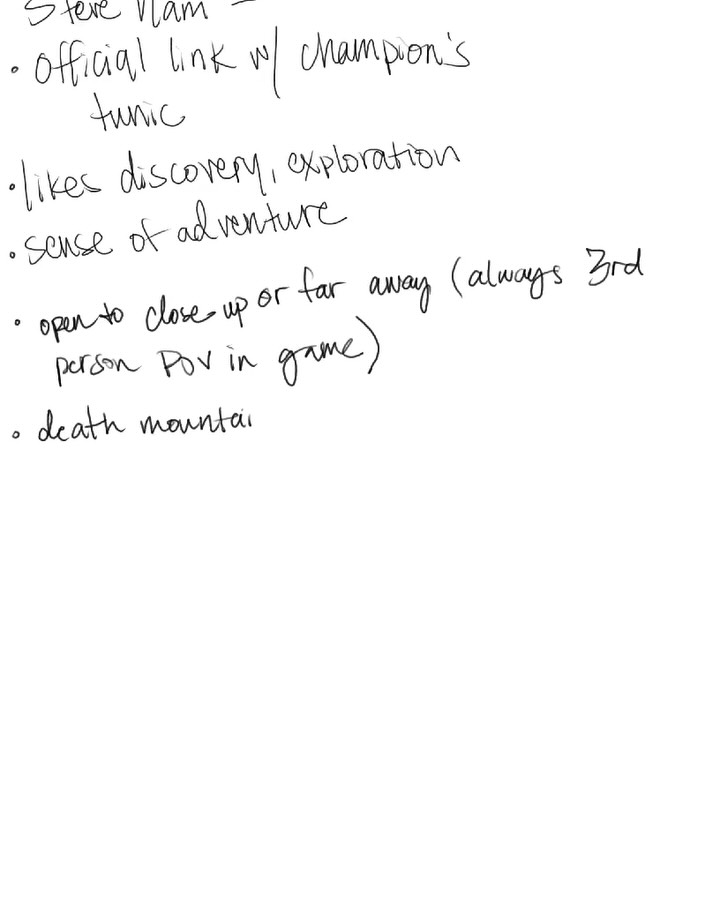 Steve Nam -
• official link w/ champion's
tunic
• likes discovery, exploration
• sense of adventure
• open to close up or far away (always 3rd
person POV in game)
• death mountai